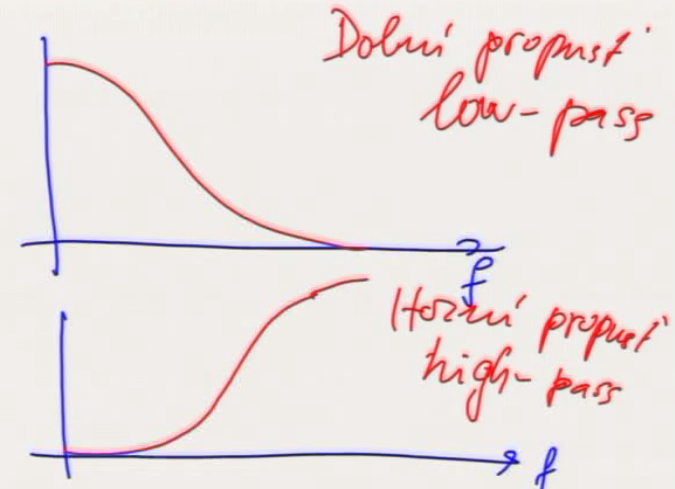 Dolní propusť
low-pass
f
Horní propusť
high-pass
f